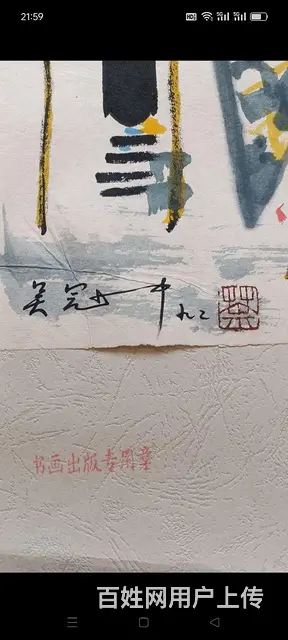 21:59
吴冠中 九二
书画出版专用章
百姓网用户上传